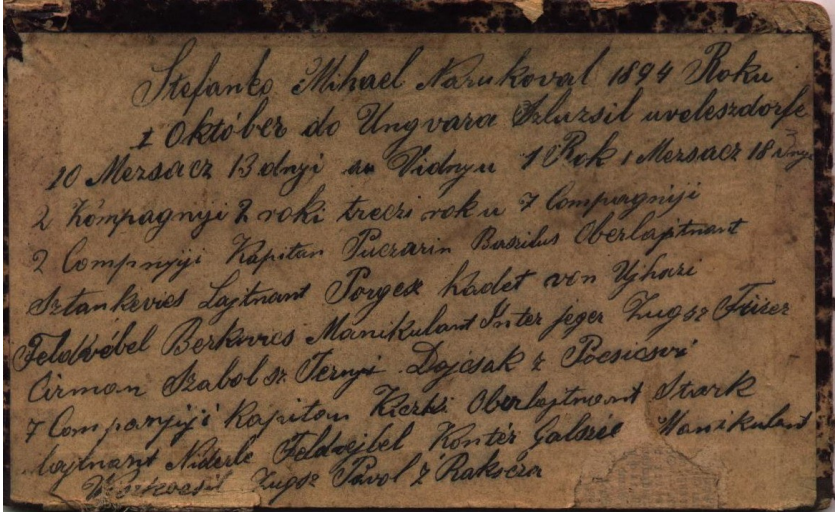 Stefanko Mihael Narukoval 1894 Roku
1 Október do Ungvara Szluzsil uveleszdorfe
10 Mezsacz 13 dnyi au Vidnyu 1 Rok 1 Mezsacz 18 dnyi
2 Kompagnyii 2 roki treczi roku 7 Compagniji
2 Compnyiji Kapitan Puczarin Baszilus Oberlajtnant
Sztankevics Lajtnant Porges kadet von Ujhazi
Feldvébel Berkovics Manikulant Inter jéger Zugsz Fürer
Cirman Szabol sz. Ternyi Dojcsak z
7 Companyiji Kapitan Oberlajtnant Stark
Lajtnant Niderle Feldvejbel Kontér Manikulant
Zugsz Pavol z Rakócza